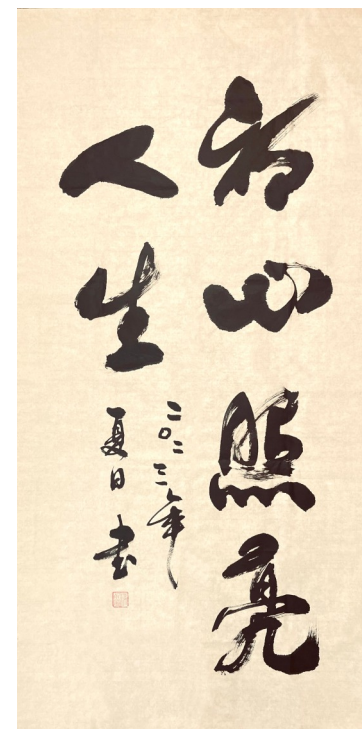 初心照亮
人生
二〇二三年
夏日书